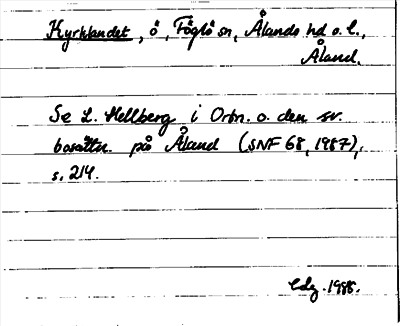 Kyrklandet, ö, Föglö sn, Ålands hd o. l.,
Åland.
Se L. Hellberg i Ortn. o. den sv.
bosättn. på Åland (SNF 68, 1987),
s. 214.
1988.